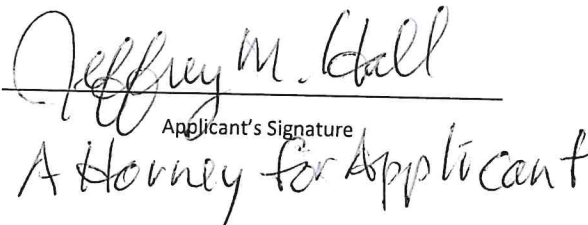 Jeffrey M. Hall
Applicant's Signature
Attorney for Applicant